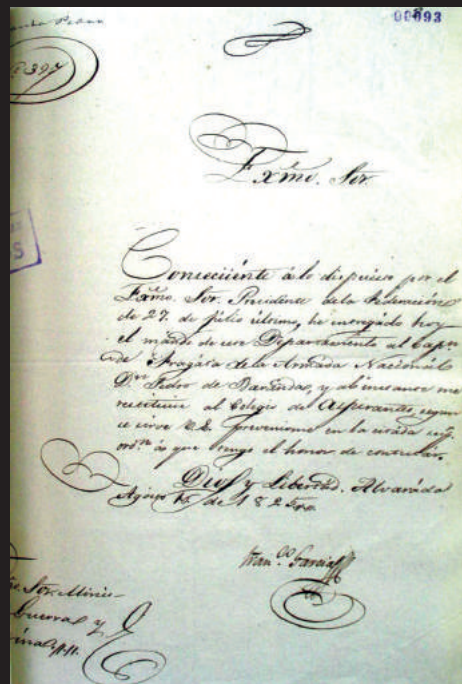 00093
397
Exmo. Sor.
Consecüente á lo dispuesto por el
Exmo. Sor. Presidente de la Federacion
de 27. de Julio último, he entregado hoy
el mando de ese Departamento al Capn
de Fragata de la Armada Nacional
Dn Pedro de Baranda, y al instante me
restituí al Colegio de Aspirantes, segun
se sirve V.E. prevenirme en la citada
ordn á que tengo el honor de contestar.
Dios y Libertad. Alvarado
Agosto de 1825
Franco Garcia
Sor. Minis-
Guerra y